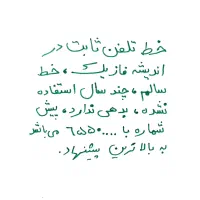 خط تلفن ثابت در
اندیشه فاز یک، خط
سالم، چند سال استفاده
نشده، بدهی ندارد، پیش
شماره با ....۶۵۵۰ می‌باشد
به بالاترین پیشنهاد.